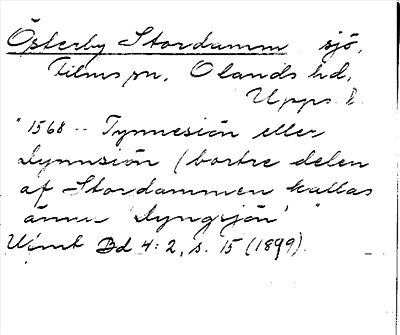 Österby Stordamm sjö,
Films sn, Olands hd,
Upps. l.
"1568 -- Tynnesiön eller
Dynnsiön (bortre delen
af Stordammen kallas
ännu 'Dyngsjön' "
Ufmt Bd 4:2, s. 15 (1899).